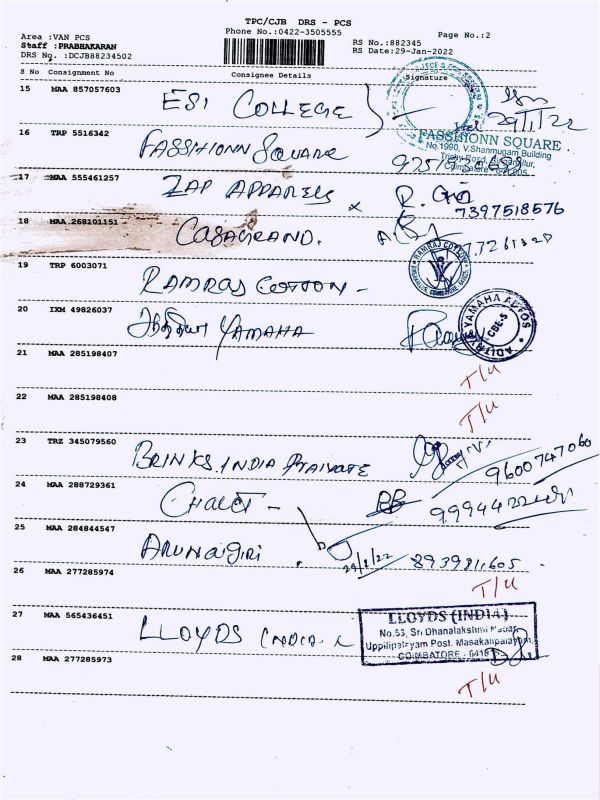 TPC/CJB DRS - PCS
Area :VAN PCS
Phone No.:0422-3505555
Page No.:2
Staff :PRABHAKARAN
RS No.:882345
DRS No. :DCJB88234502
RS Date:29-Jan-2022
S No Consignment No Consignee Details Signature
15 MAA 857057603 ESI COLLEGE
29/1/22
16 TRP 5516342 FASSHIONN SQUARE
FASSHIONN SQUARE
No.1990, V.Shanmugam Building
Trichy Road,
17 MAA 555461257 ZAP APPARELS
7397518576
18 MAA 268101151 CASAGRAND.
19 TRP 6003071 RAMRAJ COTTON -
RAMRAJ COTTON
20 IXM 49826037 YAMAHA
ADITYA YAMAHA AUTOS
CBE-5
21 MAA 285198407
T/U
22 MAA 285198408
T/U
23 TRZ 345079560 BRINKS INDIA PRAIVATE
9600747060
24 MAA 288729361 CHALET -
25 MAA 284844547 ARUNAGIRI
29/1/22 8939811605
26 MAA 277285974
T/U
27 MAA 565436451 LLOYDS INDIA
LLOYDS (INDIA)
No.53, Sri Dhanalakshmi Nagar,
Uppilipalayam Post, Masakalipalayam,
COIMBATORE - 6410
28 MAA 277285973
T/U